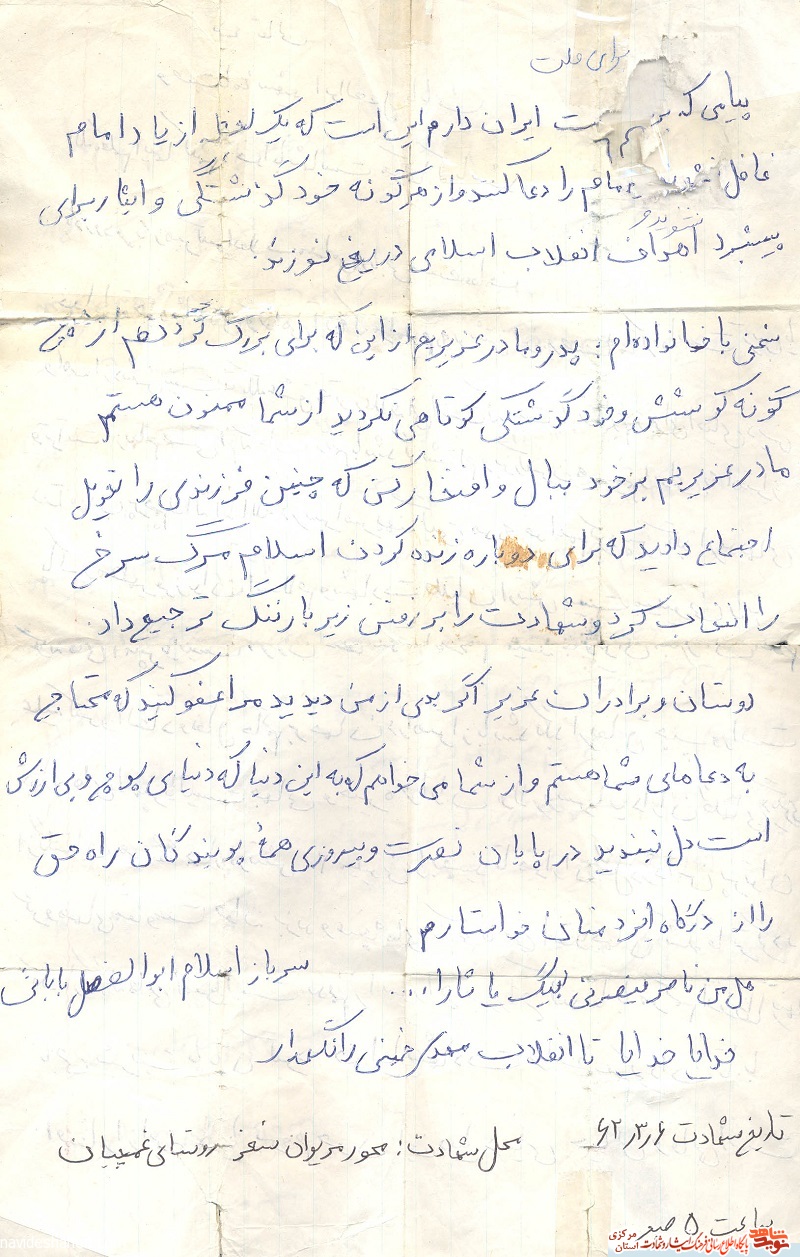 برای ملت
پیامی که به ملت ایران دارم این است که یک لحظه از یاد امام
غافل نشوید امام را دعا کنند و از هر گونه خود گذشتگی و ایثار برای
نشوید و
پیشبرد اهداف انقلاب اسلامی دریغ نورزند.
سخنی با خانواده‌ام: پدر و مادر عزیزم از این که برای بزرگ کردنم از هیچ
گونه کوشش و خود گذشتگی کوتاهی نکردید از شما ممنون هستم
مادر عزیزیم بر خود ببال و افتخار کن که چنین فرزندی را تحویل
اجتماع دادید که برای دوباره زنده کردن اسلام مرگ سرخ
را انتخاب کرد و شهادت را بر رفتن زیر بار ننگ ترجیع داد.
دوستان و برادران عزیز اگر بدی از من دیدید مرا عفو کنید که محتاج
به دعاهای شما هستم و از شما می خواهم که به این دنیا که دنیای پوچ و بی ارزش
است دل نبندید در پایان نصرت و پیروزی همهٔ پویندگان راه حق
را از درگاه ایزد منان خواستارم
سرباز اسلام ابوالفضل بابائی
هل من ناصر ینصرنی لبیک یا ثارا....
خدایا خدایا تا انقلاب مهدی خمینی را نگهدار
تاریخ شهادت ۶۲/۳/۶
محل شهادت: محور مریوان سقز روستای
ساعت ۵ صبح
نوید شاهد
پایگاه اطلاع رسانی فرهنگ ایثار و شهادت
استان مرکزی